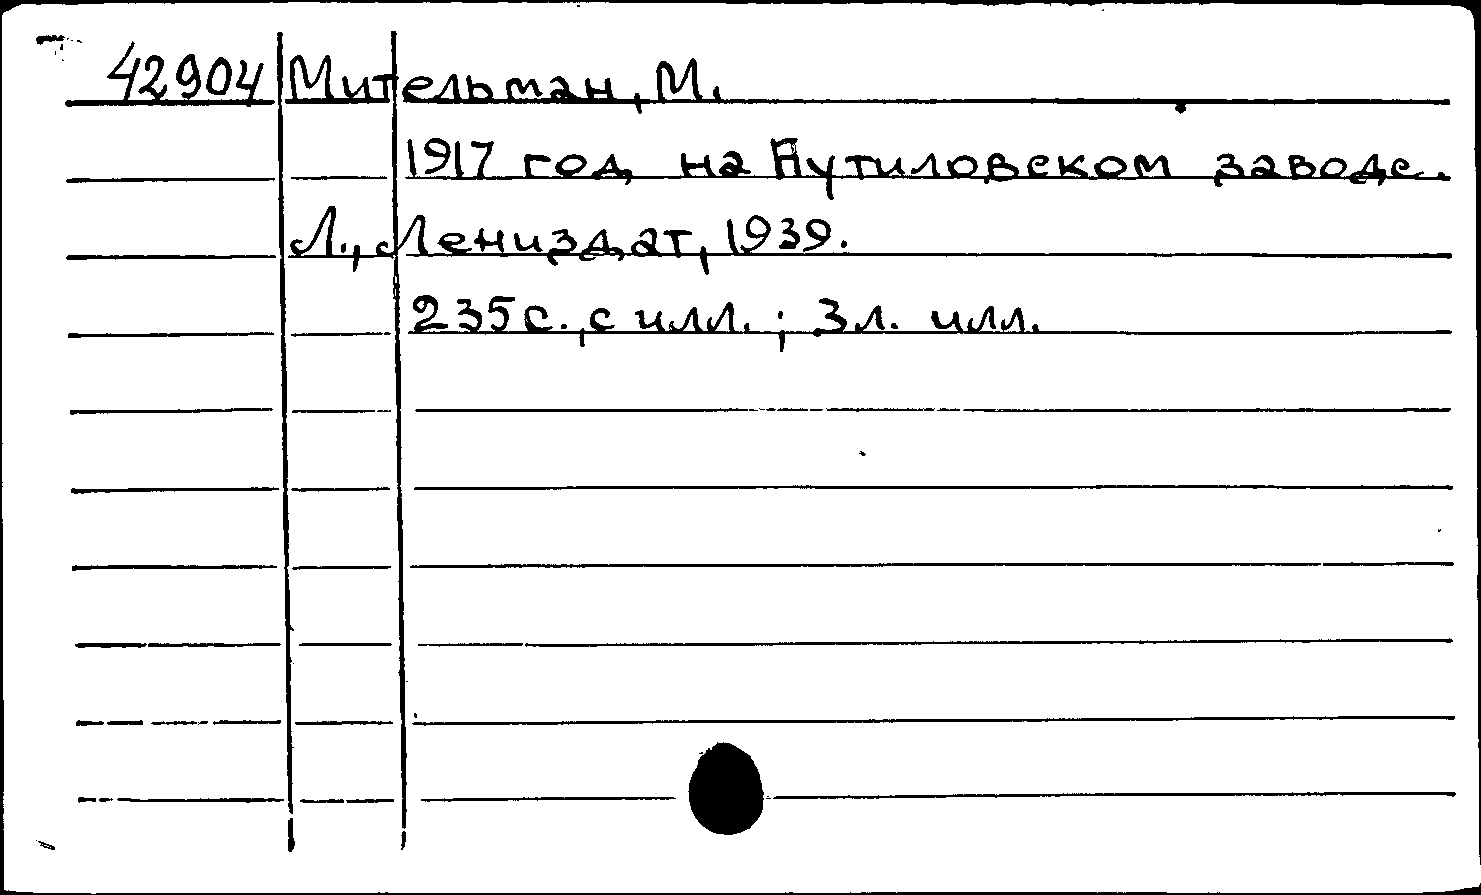 42904 Мительман, М.
1917 год на Путиловском заводе.
Л., Лениздат, 1939.
235 с., с илл.; 3 л. илл.